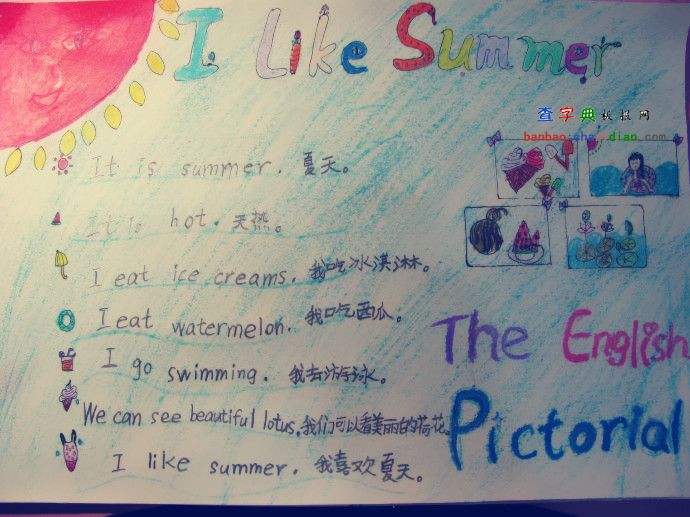 I Like Summer
查字典板报网
banbao.chazidian.com
It is summer. 夏天。
It is hot. 天热。
I eat ice creams. 我吃冰淇淋。
I eat watermelon. 我吃西瓜。
I go swimming. 我去游泳。
We can see beautiful lotus. 我们可以看美丽的荷花。
I like summer. 我喜欢夏天。
The English
Pictorial